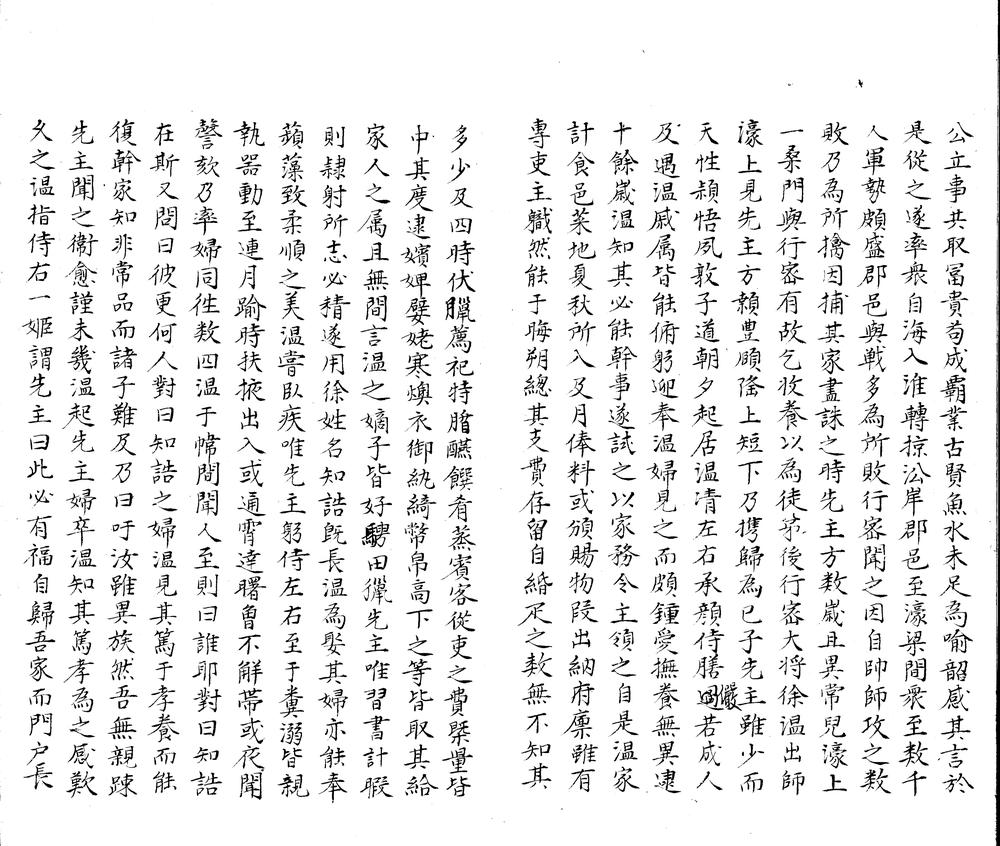 公立事共取冨貴苟成霸業古賢魚水未足為喻韶感其言於
是從之遂率衆自海入淮轉掠㳂岸郡邑至濠梁間衆至数千
人軍勢頗盛郡邑與戰多為所敗行密聞之因自帥師攻之数
敗乃為所擒因捕其家盡誅之時先主方数嵗且異常兒濠上
一桑門與行密有故乞收養以為徒弟後行密大将徐温出師
濠上見先主方顙豊頤隆上短下乃携歸為已子先主雖少而
天性穎悟夙敦子道朝夕起居温凊左右承顔侍膳嚴若成人
及遇温戚属皆能俯躬迎奉温婦見之而頗鍾愛撫養無異逮
十餘嵗温知其必能幹事遂試之以家務令主領之自是温家
計食邑菜地夏秋所入及月俸料或頒賜物段出納府廪雖有
專吏主軄然能于晦朔總其支費存留自緡疋之数無不知其
多少及四時伏臘薦祀特腯醼饌肴蒸賓客從吏之費槩量皆
中其度逮嬪婢嬖姥寒燠衣御紈綺幣帛高下之等皆取其給
家人之属且無間言温之嫡子皆好騁田獵先主唯習書計暇
則隷射所志必精遂用徐姓名知誥既長温為娶其婦亦能奉
蘋藻致柔順之美温嘗臥疾唯先主躬侍左右至于糞溺皆親
執器動至連月踰時扶掖出入或通宵達曙曾不解帶或夜聞
謦欬乃率婦同徃数四温于幃間聞人至則曰誰耶對曰知誥
在斯又問曰彼更何人對曰知誥之婦温見其篤于孝養而能
復幹家知非常品而諸子難及乃曰吁汝雖異族然吾無親踈
先主聞之衛愈謹未幾温起先主婦卒温知其篤孝為之感歎
久之温指侍右一姬謂先主曰此必有福自歸吾家而門户長